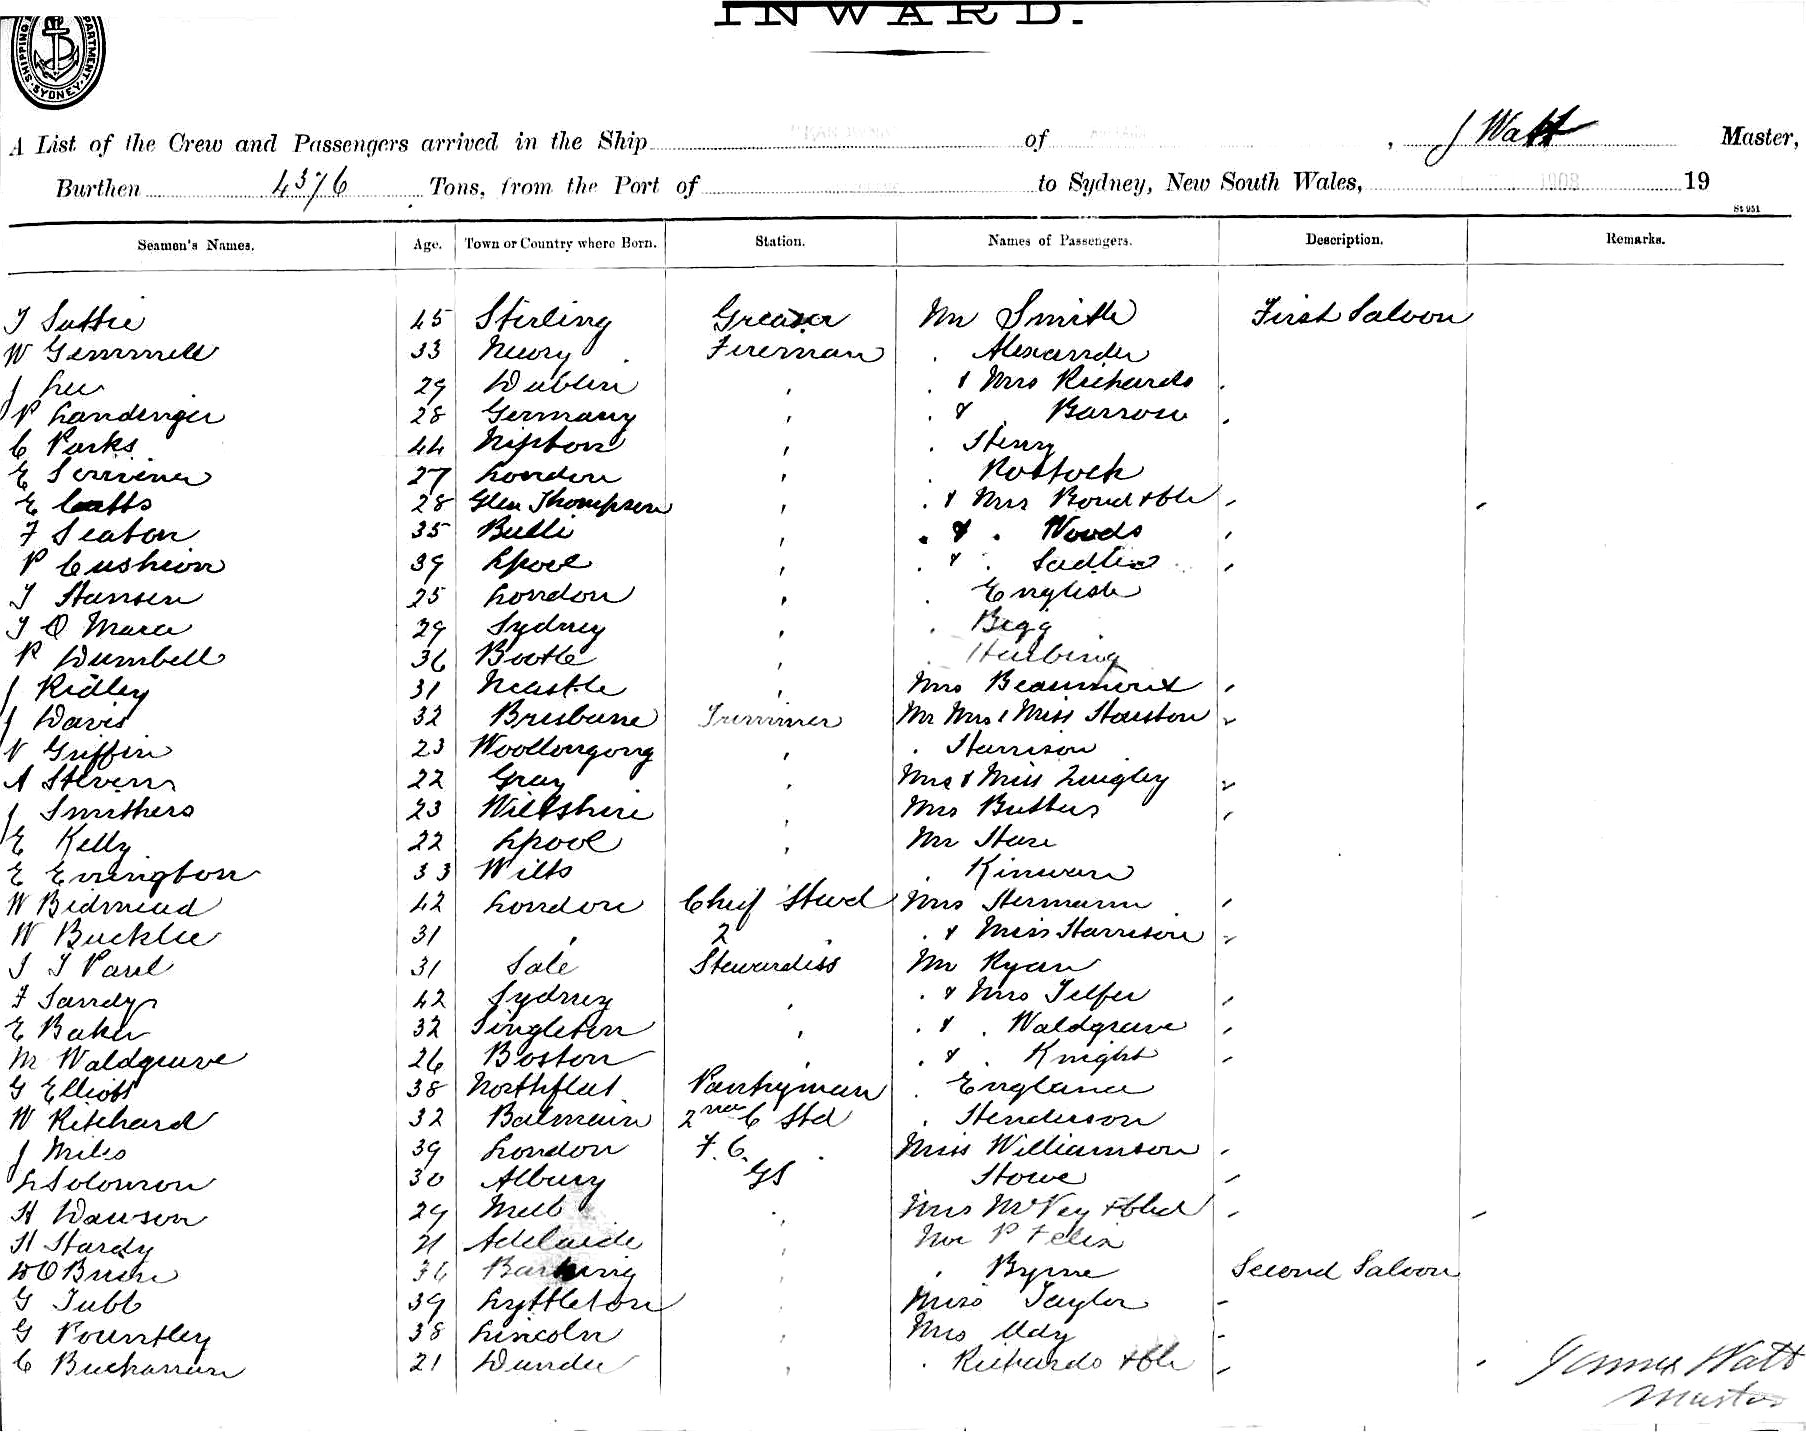 INWARD.
SHIPPING DEPARTMENT. SYDNEY
A List of the Crew and Passengers arrived in the Ship of , J Watt Master,
Burthen 4376 Tons, from the Port of to Sydney, New South Wales, 1908 19
St 951
Seamen's Names. Age. Town or Country where Born. Station. Names of Passengers. Description. Remarks.
T Suttie 45 Stirling Greaser Mr Smith First Saloon
W Gemmell 33 Newry Fireman . Alexander
J Lee 29 Dublin , . & Mrs Richards ,
P Landenger 28 Germany , . & Barrow ,
C Parks 44 Nipton , . Henry
E Scrivener 27 London , . Rostock
E Catts 28 Glen Thompson , . & Mrs Bond & Ch ,
F Seaton 35 Bulli , . & . Woods ,
P Cushion 39 Lpool , . & . Sadlier ,
T Hansen 25 London , . English
T O Mara 29 Sydney , . Begg
P Dumbell 36 Bootle , .
J Ridley 31 Ncastle , Mrs Beaumont ,
J Davis 32 Brisbane Trimmer Mr Mrs & Miss Houston ,,
N Griffin 23 Woollongong , . Harrison
A Stevens 22 Gray , Mrs & Miss Quigley ,,
J Smithers 23 Wiltshire , Mrs Butters ,
E Kelly 22 Lpool , Mr Hare
E Errington 33 Wilts . Kirwan
W Bidmead 42 London Chief Stewd Mrs Hermann ,
W Bucklee 31 , 2 . . & Miss Harrison ,,
S J Paul 31 Sale Stewardess Mr Ryan
F Sandys 42 Sydney , . & Mrs Telfer ,
E Baker 32 Singleton , . & . Waldgrave ,
M Waldgrave 26 Boston , . & . Knight ,
G Elliott 38 Northfleet Pantryman . England
W Ritchard 32 Balmain 2nd C Std . Henderson
J Miles 39 London F. C. . Miss Williamson ,
L Solomon 30 Albury GS Howe ,
H Dawson 29 Melb , Mrs McVey & Chd ,
H Hardy 21 Adelaide , Mr P Felix
D O Brien 36 Barking , . Byrne Second Saloon
G Tubb 39 Lyttleton , Miss Taylor ,
G Pountley 38 Lincoln , Mrs Udy ,
C Buchanan 21 Dundee , . Richards & Ch ,
James Watt
Master